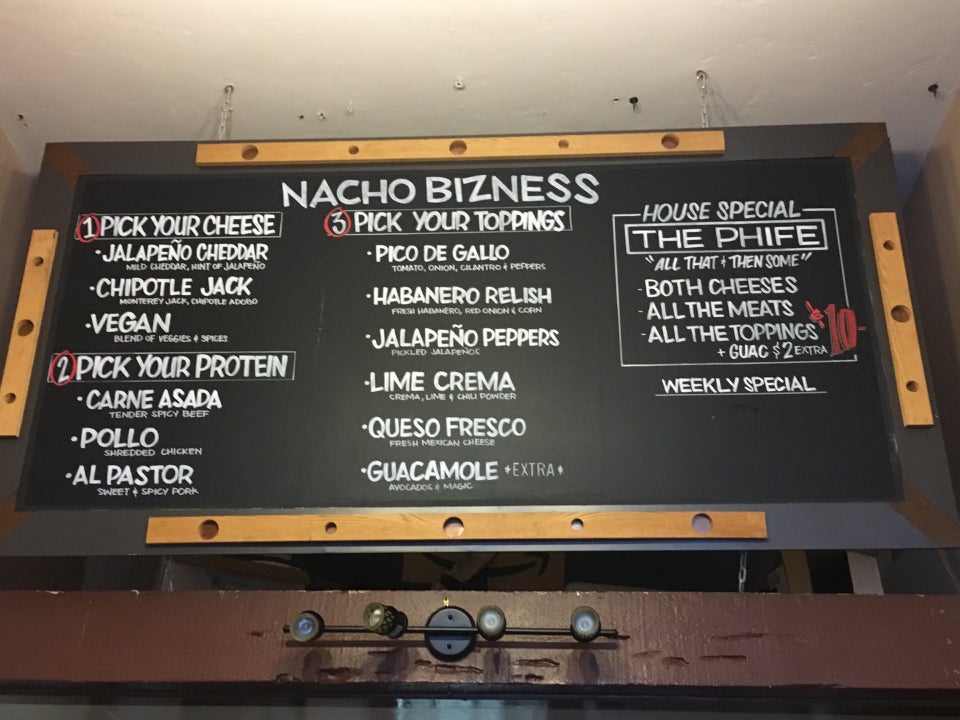 NACHO BIZNESS
1 PICK YOUR CHEESE
• JALAPEÑO CHEDDAR
MILD CHEDDAR, HINT OF JALAPEÑO
• CHIPOTLE JACK
MONTEREY JACK, CHIPOTLE ADOBO
• VEGAN
BLEND OF VEGGIES & SPICES
2 PICK YOUR PROTEIN
• CARNE ASADA
TENDER SPICY BEEF
• POLLO
SHREDDED CHICKEN
• AL PASTOR
SWEET & SPICY PORK
3 PICK YOUR TOPPINGS
• PICO DE GALLO
TOMATO, ONION, CILANTRO & PEPPERS
• HABANERO RELISH
FRESH HABANERO, RED ONION & CORN
• JALAPEÑO PEPPERS
PICKLED JALAPEÑOS
• LIME CREMA
CREMA, LIME & CHILI POWDER
• QUESO FRESCO
FRESH MEXICAN CHEESE
• GUACAMOLE *EXTRA*
AVOCADOS & MAGIC
HOUSE SPECIAL
THE PHIFE
"ALL THAT & THEN SOME"
- BOTH CHEESES
- ALL THE MEATS
- ALL THE TOPPINGS $10-
+ GUAC $2 EXTRA
WEEKLY SPECIAL